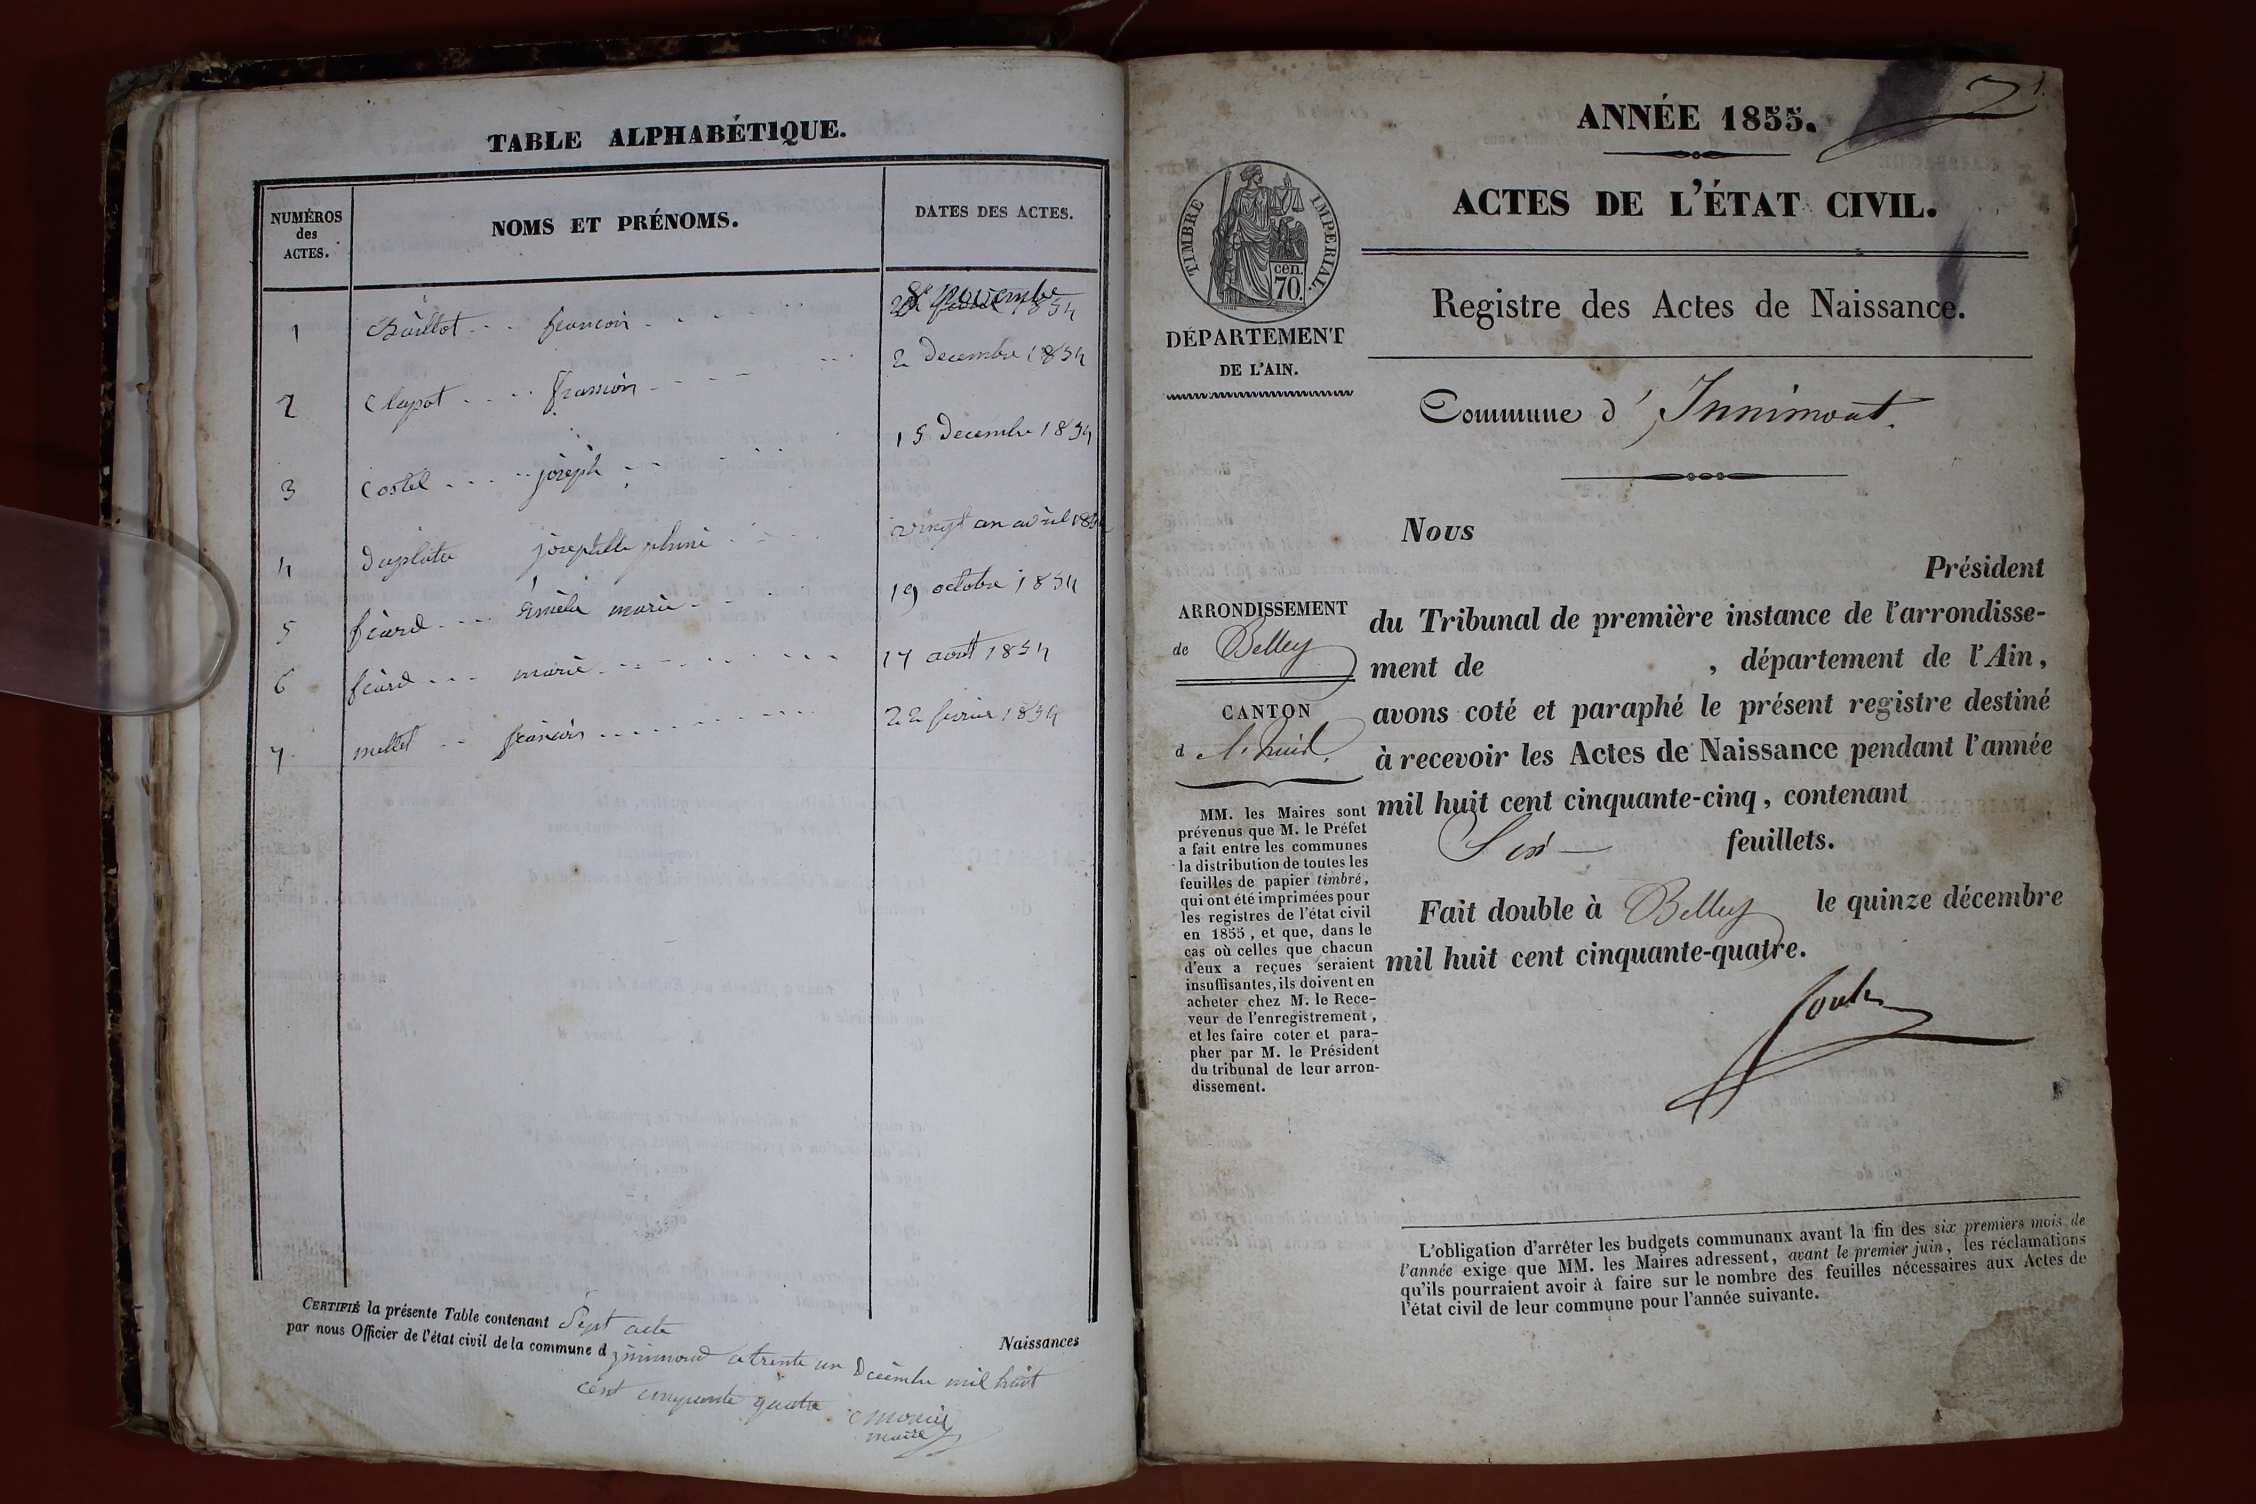 TABLE ALPHABÉTIQUE.
NUMÉROS des ACTES.
NOMS ET PRÉNOMS.
DATES DES ACTES.
1 francois novembre 1854
2 Clapot francois 2 decembre 1854
3 Costel joseph 15 decembre 1854
4 vingt un avril
5 féard marie 19 octobre 1854
6 féard marie 17 aout 1854
7 mettet francois 22 fevrier 1854
CERTIFIÉ la présente Table contenant Sept acte
Naissances
par nous Officier de l'état civil de la commune d a trente un Decembre mil huit
cent cinquante quatre
maire
ANNÉE 1855.
ACTES DE L'ÉTAT CIVIL.
TIMBRE IMPERIAL.
cen.
70.
Registre des Actes de Naissance.
DÉPARTEMENT
DE L'AIN.
Commune d' Innimont.
Nous
Président
du Tribunal de première instance de l'arrondisse-
ment de , département de l'Ain,
avons coté et paraphé le présent registre destiné
à recevoir les Actes de Naissance pendant l'année
mil huit cent cinquante-cinq, contenant
Six feuillets.
Fait double à Belley le quinze décembre
mil huit cent cinquante-quatre.
ARRONDISSEMENT
de Belley
CANTON
d
MM. les Maires sont
prévenus que M. le Préfet
a fait entre les communes
la distribution de toutes les
feuilles de papier timbré,
qui ont été imprimées pour
les registres de l'état civil
en 1855, et que, dans le
cas où celles que chacun
d'eux a reçues seraient
insuffisantes, ils doivent en
acheter chez M. le Rece-
veur de l'enregistrement,
et les faire coter et para-
pher par M. le Président
du tribunal de leur arron-
dissement.
L'obligation d'arrêter les budgets communaux avant la fin des six premiers mois de
l'année exige que MM. les Maires adressent, avant le premier juin, les réclamations
qu'ils pourraient avoir à faire sur le nombre des feuilles nécessaires aux Actes de
l'état civil de leur commune pour l'année suivante.